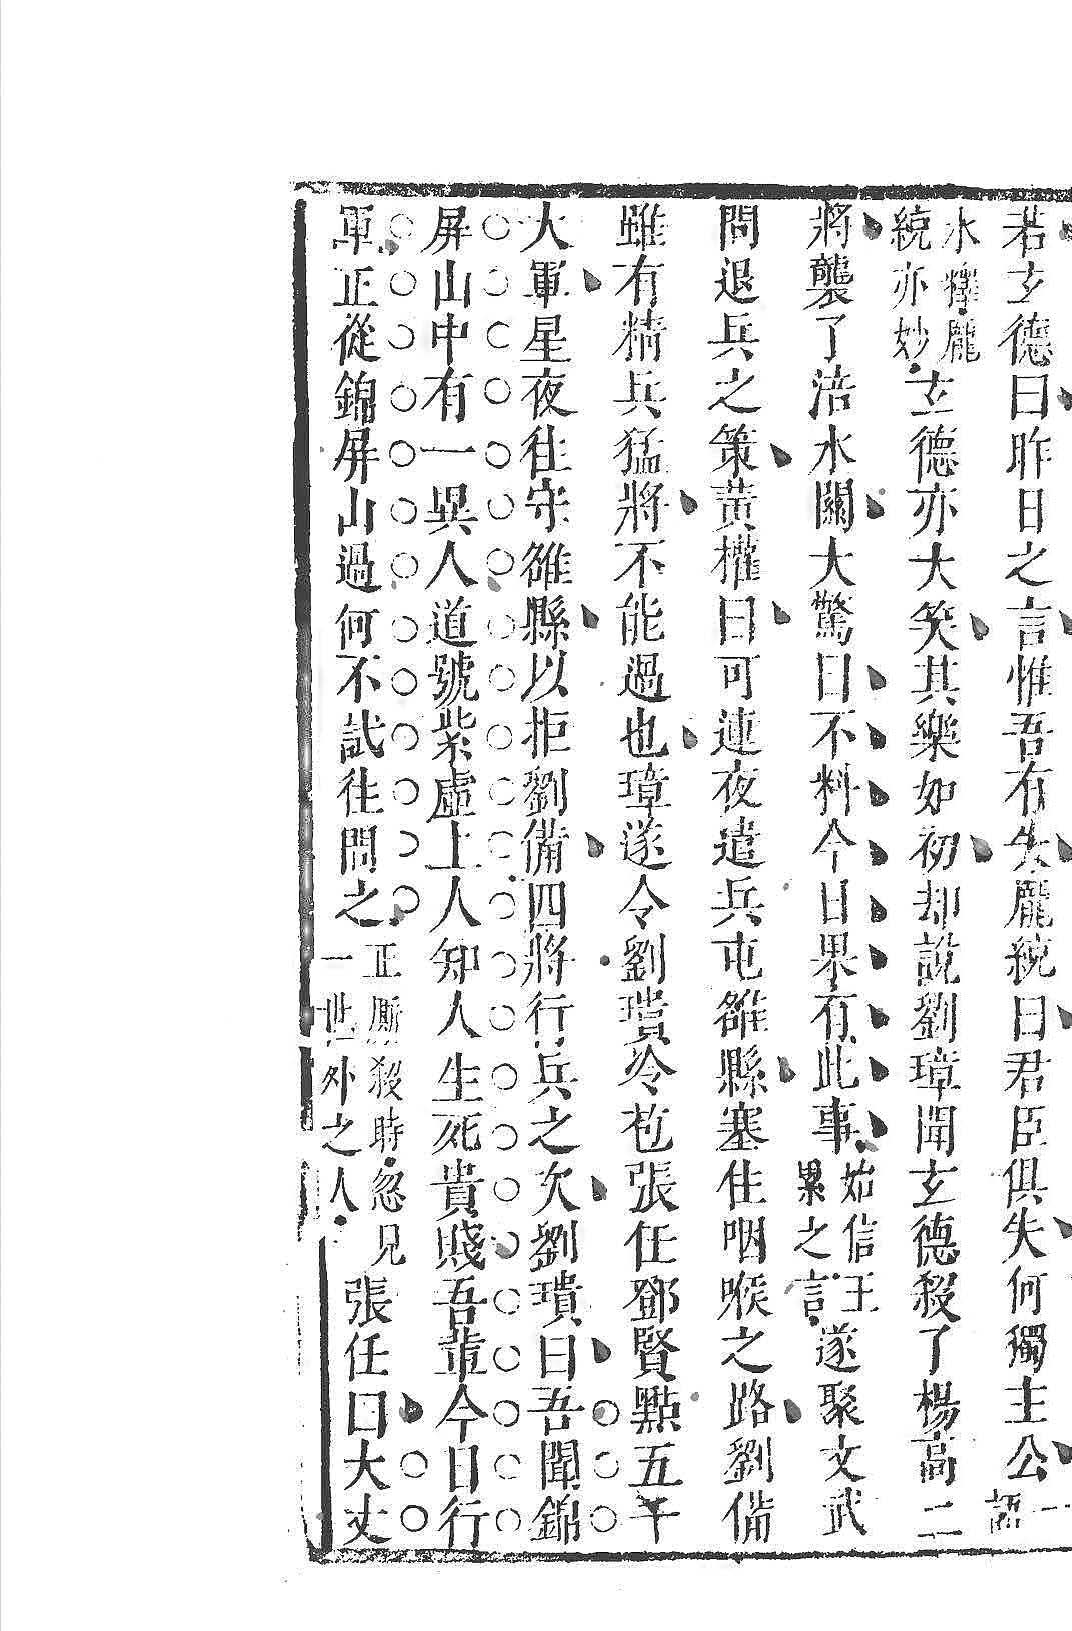 若玄德曰昨日之言惟吾有失龐統曰君臣俱失何獨主公一語
水釋龐統亦妙玄德亦大笑其樂如初却說劉璋聞玄德殺了楊高二
將襲了涪水關大驚曰不料今日果有此事始信王累之言遂聚文武
問退兵之策黃權曰可連夜遣兵屯雒縣塞住咽喉之路劉備
雖有精兵猛將不能過也璋遂令劉璝冷苞張任鄧賢點五千
大軍星夜往守雒縣以拒劉備四將行兵之次劉璝曰吾聞錦
屏山中有一異人道號紫虛上人知人生死貴賤吾輩今日行
軍正從錦屏山過何不試往問之正厮殺時忽見一世外之人張任曰大丈